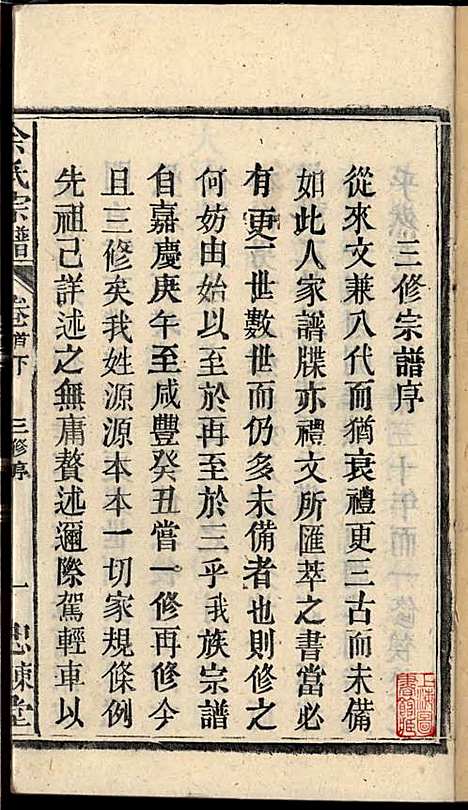 三修宗譜序
從來文兼八代而猶衰禮更三古而未備
如此人家譜牒亦禮文所匯萃之書當必
有更世數世而仍多未備者也則修之
何妨由始以至於再至於三乎我族宗譜
自嘉慶庚午至咸豐癸丑嘗一修再修今
且三修矣我姓源源本本一切家規條例
先祖己詳述之無庸贅述邇際駕輕車以
余氏宗譜
卷首下
三修序
一
忠諫堂
上海圖書館藏